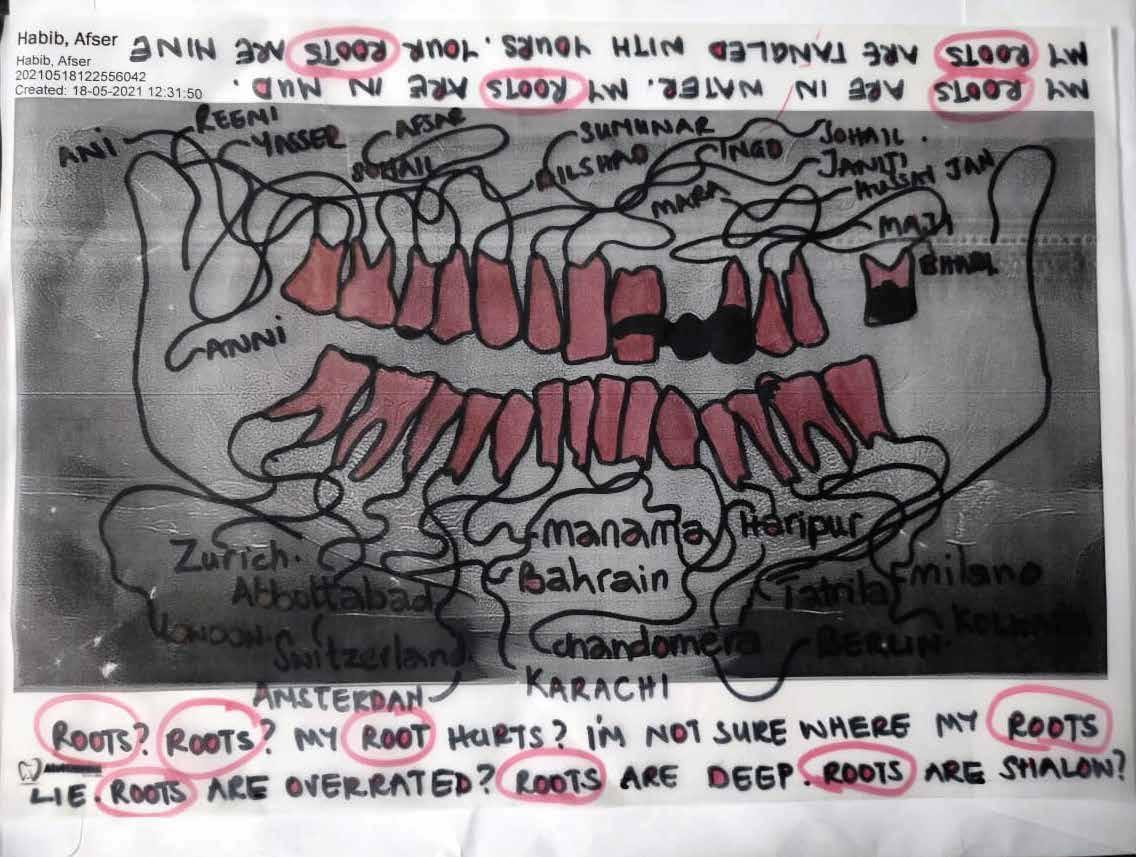 Habib, Afser
Habib, Afser
20210518122556042
Created: 18-05-2021 12:31:50
MY ROOTS ARE IN WATER. MY ROOTS ARE IN MUD.
MY ROOTS ARE TANGLED WITH YOURS. YOUR ROOTS ARE MINE
ANI
REEMI
YASSER
AFSAR
SOHAIL
SUMUNAR
DILSHAD
INGO
MARA
JOHAIL.
JAN
MAJI
ANNI
Zurich.
Abbottabad
LONDON
Switzerland.
AMSTERDAN
manama
Bahrain
Chandomera
KARACHI
Haripur
Tatrila
milano
BERLIN.
ROOTS? ROOTS? MY ROOT HURTS? I'M NOT SURE WHERE MY ROOTS
LIE. ROOTS ARE OVERRATED? ROOTS ARE DEEP. ROOTS ARE SHALON?